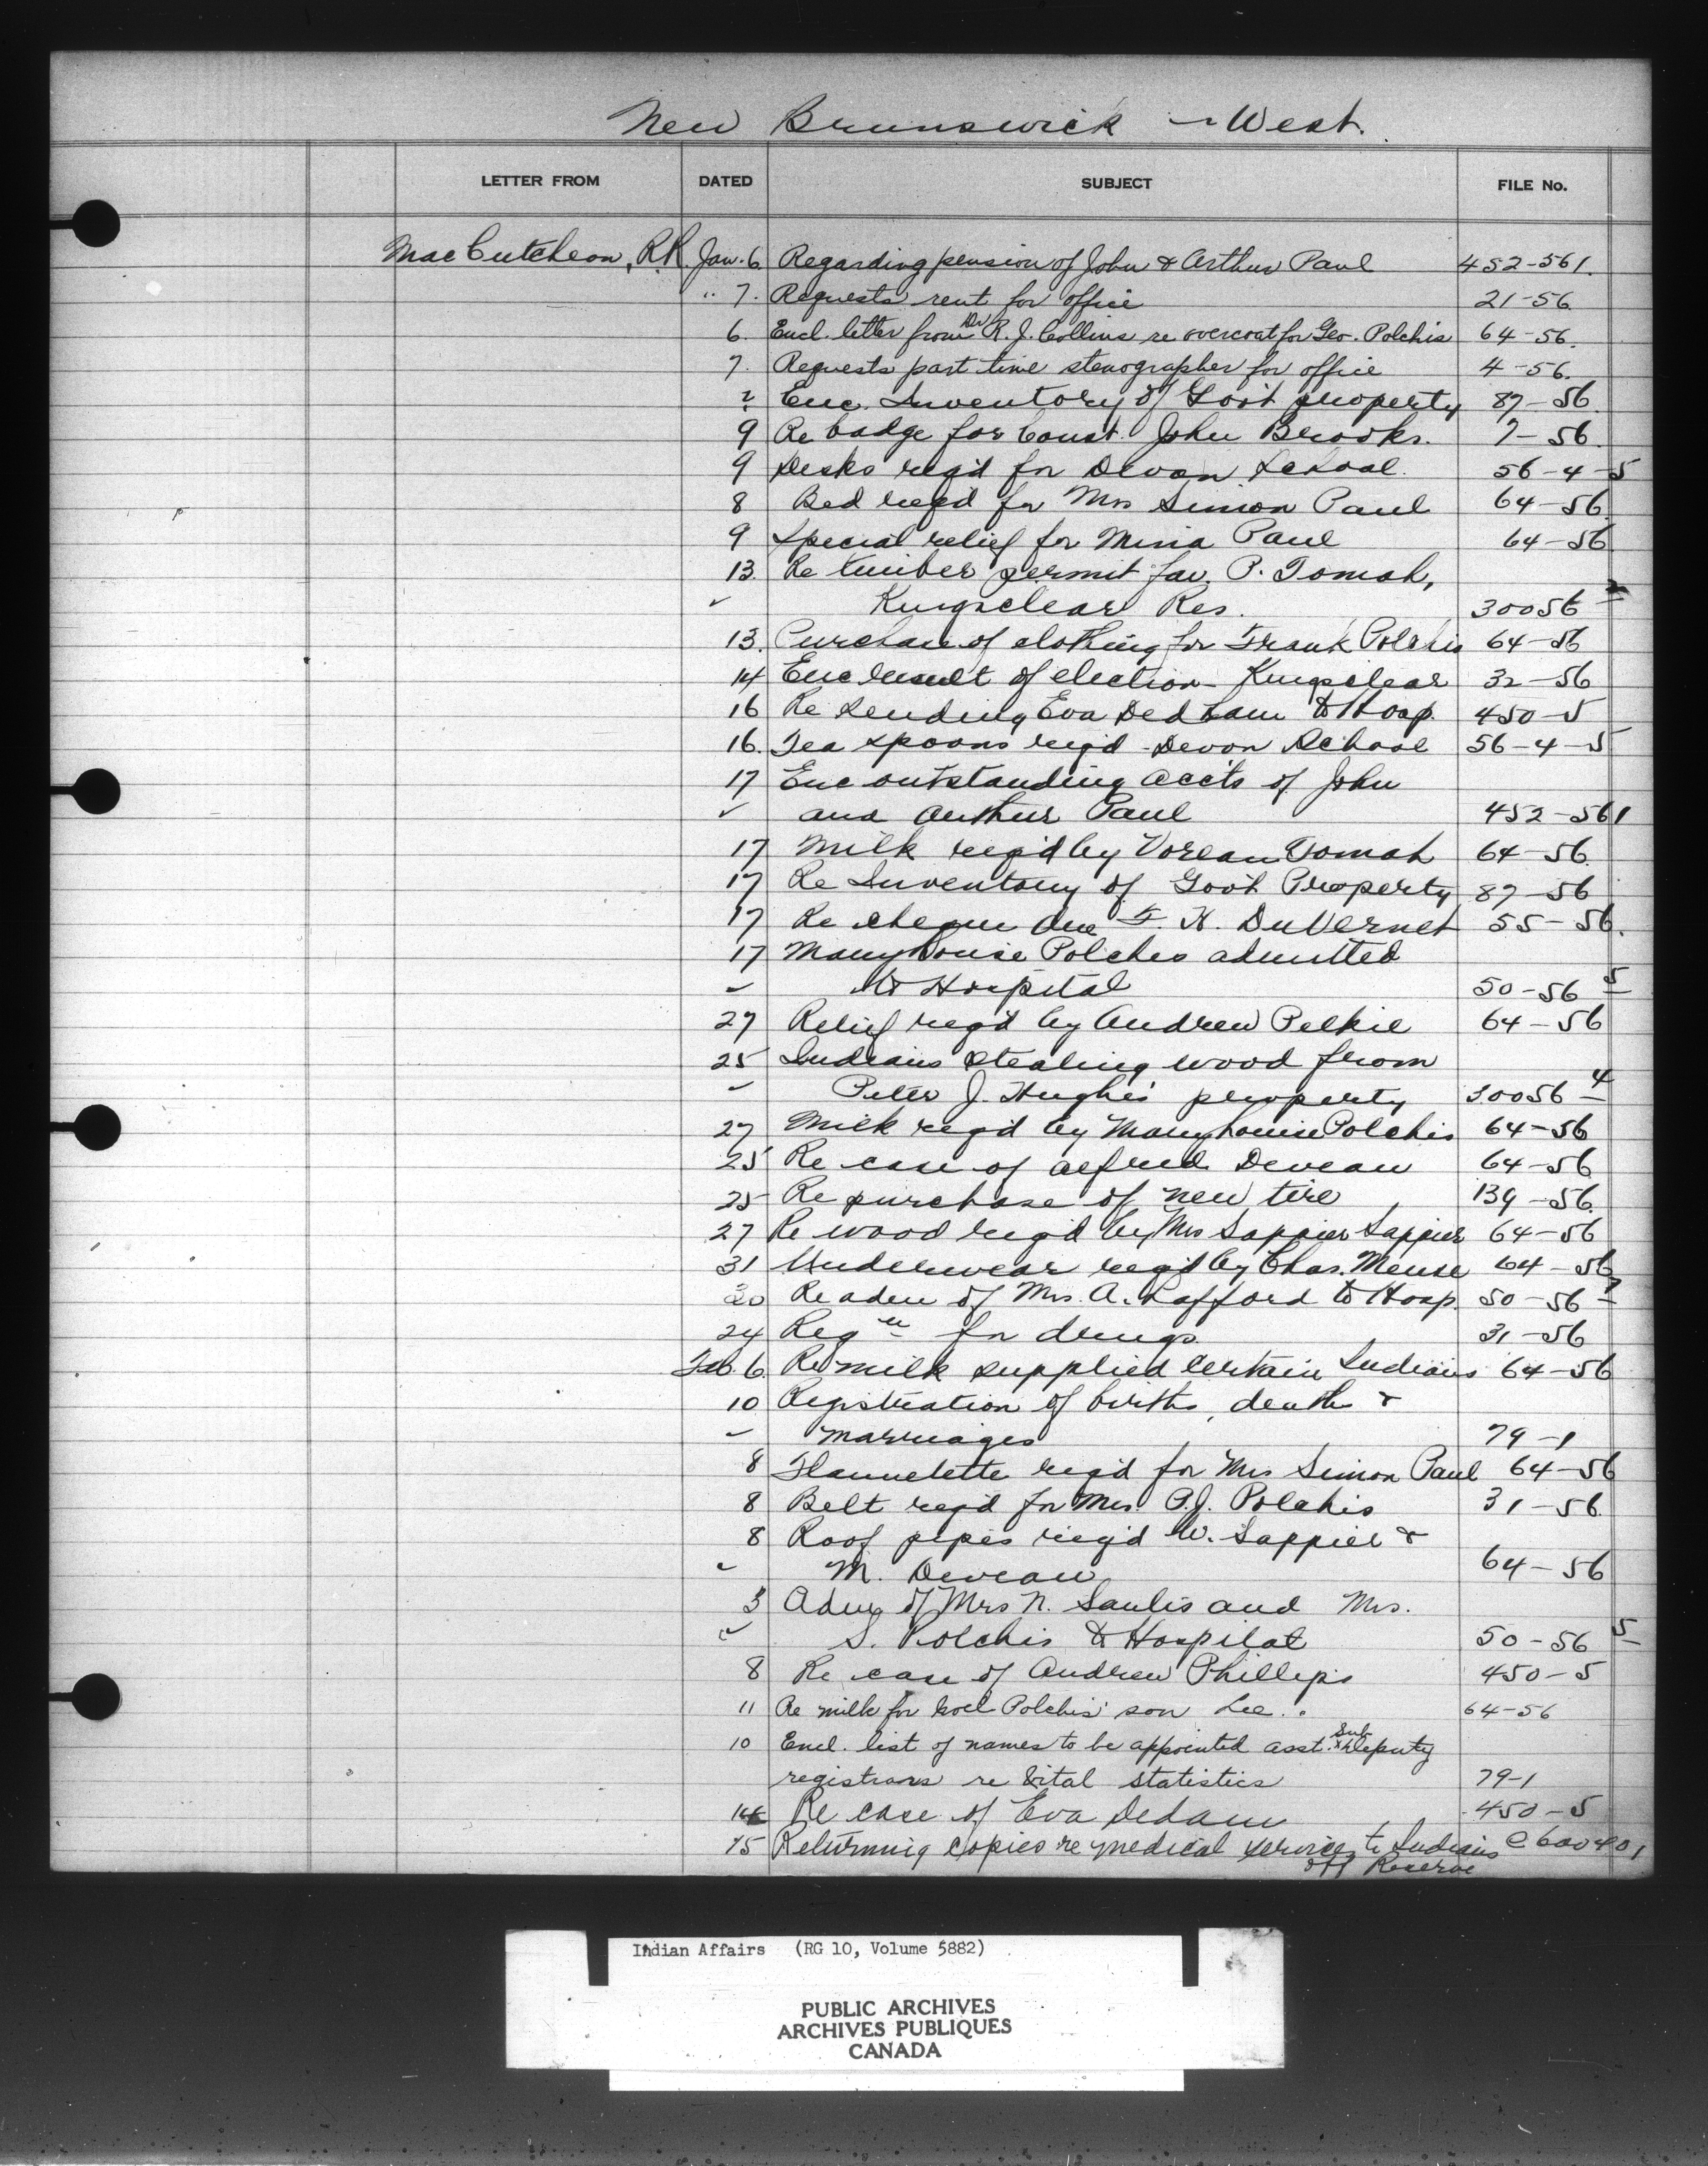 New Brunswick - West.
LETTER FROM DATED SUBJECT FILE No.
MacCutcheon, R.R. Jan. 6 Regarding pension of John & Arthur Paul 452-561.
" 7. Requests rent for office 21-56
6. Encl. letter from Dr R. J. Collins re overcoat for Geo. Polchis 64-56.
7. Requests part time stenographer for office 4-56.
? Enc. Inventory of Gov't property 87-56.
9 Re badge for Const. John Brooks. 7-56.
9 Desks req'd for Devon School. 56-4-5
8 Bed req'd for Mrs Simon Paul 64-56.
9 Special relief for Mina Paul 64-56
13. Re timber permit fav. P. Tomah,
" Kingsclear Res. 30056-2
13. Purchase of clothing for Frank Polchis 64-56
14 Enc result of election - Kingsclear 32-56
16 Re sending Eva Dedham to Hosp. 450-5
16. Tea spoons req'd - Devon School 56-4-5
17 Enc outstanding acc'ts of John
" and Arthur Paul 452-561
17 Milk req'd by Tomah 64-56.
17 Re Inventory of Gov't Property 87-56
17 Re cheque due F. H. DuVernet 55-56.
17 Mary Louise Polches admitted
" to Hospital 50-56 5
27 Relief req'd by Andrew Pelkie 64-56
25 Indians stealing wood from
" Peter J. Hughes' property 30056 4
27 Milk req'd by Mary Louise Polchis 64-56
25 Re case of Alfred Deveau 64-56
25 Re purchase of new tire 139-56.
27 Re wood req'd by Mrs Sappier Sappier 64-56
31 Underwear req'd by Chas. Meuse 64-56
20 Re adm of Mrs. A. Lafford to Hosp. 50-56
24 Reqn for drugs. 31-56
Feb. 6. Re milk supplied certain Indians 64-56
10 Registration of births, deaths &
" marriages 79-1
8 Flannelette req'd for Mrs Simon Paul 64-56
8 Belt req'd for Mrs. P.J. Polchis 31-56.
8 Roof pipes req'd W. Sappier &
" M. Deveau 64-56
3 Adm of Mrs N. Saulis and Mrs.
" S. Polchis to Hospital 50-56 5
8 Re case of Andrew Phillips 450-5
11 Re milk for Noel Polchis' son Lee. 64-56
10 Encl. list of names to be appointed asst. Sub Deputy
registrars re Vital statistics 79-1
14 Re case of Eva Dedam 450-5
15 Returning copies re medical services to Indians
off Reserve
Indian Affairs (RG 10, Volume 5882)
PUBLIC ARCHIVES
ARCHIVES PUBLIQUES
CANADA